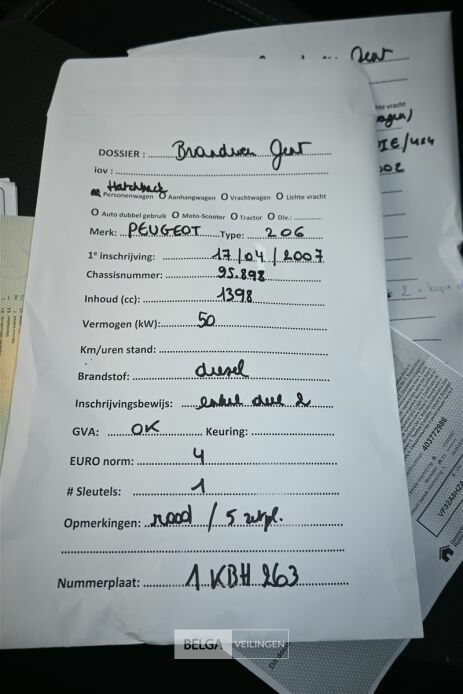 DOSSIER : Brandweer Gent
iov :
Hatchback
Personenwagen O Aanhangwagen O Vrachtwagen O Lichte vracht
O Auto dubbel gebruik O Moto-Scooter O Tractor O Div.:
Merk: PEUGEOT Type: 206
1e inschrijving: 17/04/2007
Chassisnummer: 95.898
Inhoud (cc): 1398
Vermogen (kW): 50
Km/uren stand:
Brandstof: diesel
Inschrijvingsbewijs: enkel deel 2
GVA: OK Keuring:
EURO norm: 4
# Sleutels: 1
Opmerkingen: rood / 5 zitpl.
Nummerplaat: 1 KBH 263
BELGA VEILINGEN
Gent
chte vracht
IE/414
002
403772986